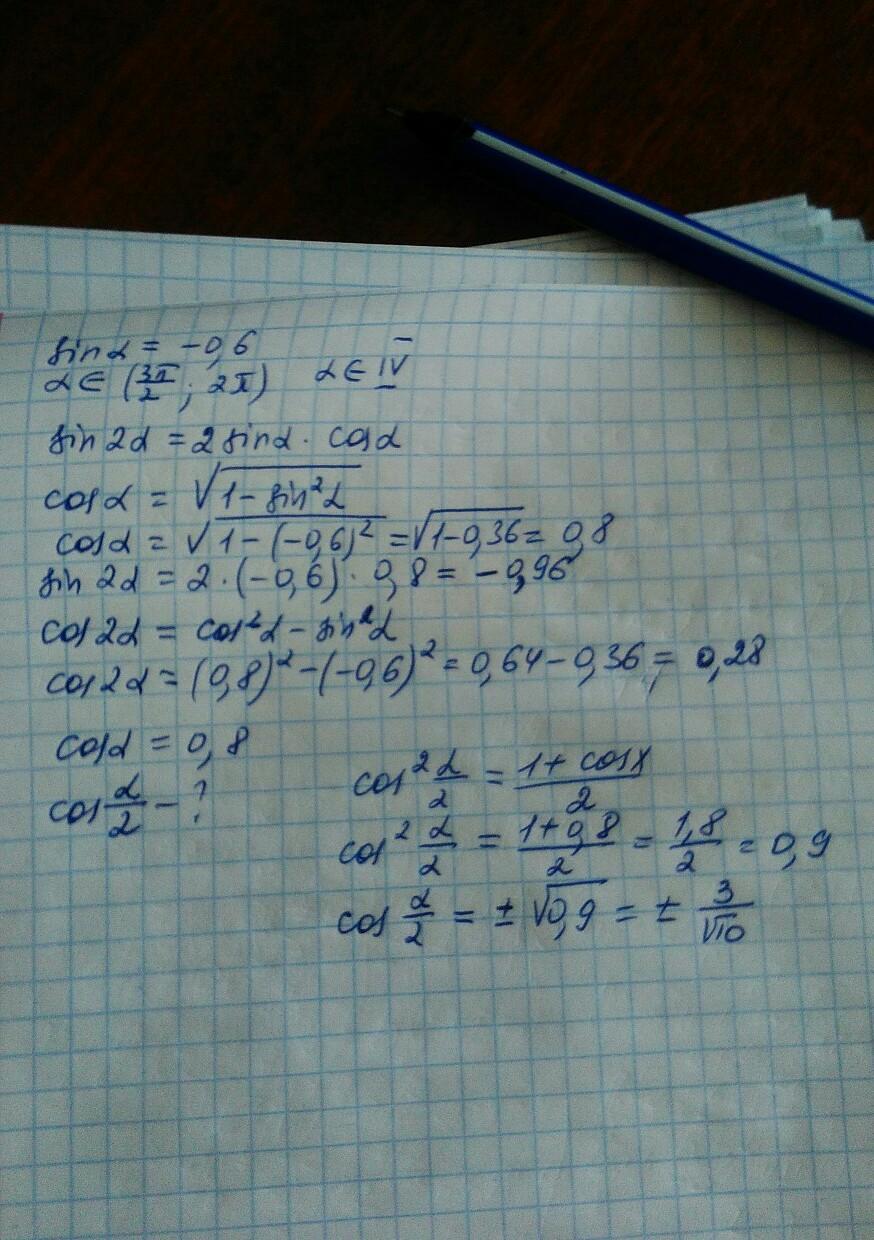 sin α = -0,6
α ∈ (3π/2; 2π) α ∈ IV
sin 2α = 2 sin α · cos α
cos α = √(1 - sin²α)
cos α = √(1 - (-0,6)²) = √(1-0,36) = 0,8
sin 2α = 2 · (-0,6) · 0,8 = -0,96
cos 2α = cos²α - sin²α
cos 2α = (0,8)² - (-0,6)² = 0,64 - 0,36 = 0,28
cos α = 0,8
cos α/2 - ?
cos² α/2 = (1 + cos x)/2
cos² α/2 = (1+0,8)/2 = 1,8/2 = 0,9
cos α/2 = ± √0,9 = ± 3/√10